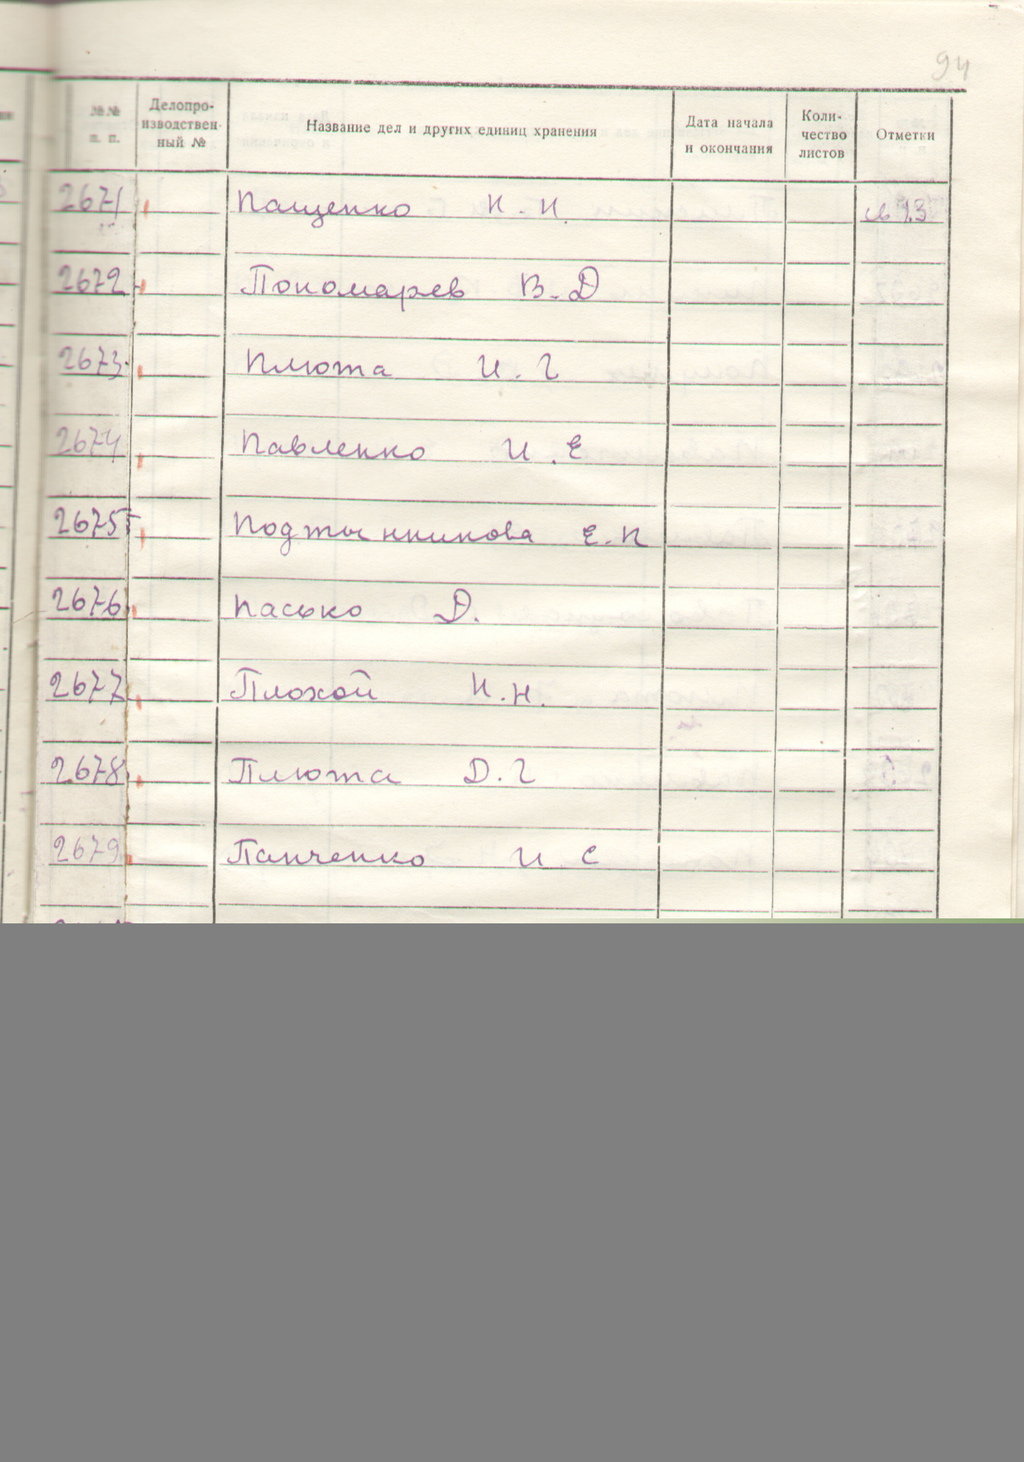 94
№№ п. п. Делопро-изводствен-ный № Название дел и других единиц хранения Дата начала и окончания Коли-чество листов Отметки
2671 Пащенко Н. И.
2672 Пономарев В. Д
2673 Плюта И. Г
2674 Павленко И. Е
2675 Подтынникова Е. П
2676 Пасько Д.
2677 Плохой И. Н.
2678 Плюта Д. Г
2679 Панченко И С